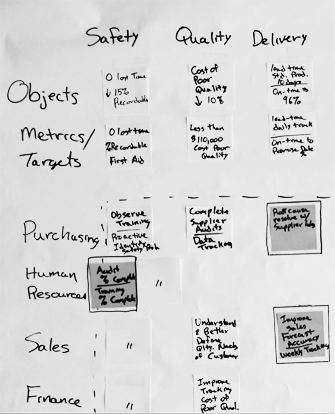 Safety Quality Delivery
Objects
0 lost Time
↓ 15%
Recordable
Cost of
Poor
Quality
↓ 10%
lead-time
Std. Prod.
10 days
On-time to
96%
Metrics/
Targets
0 lost time
% Recordable
First Aid
Less than
$110,000
Cost Poor
Quality
lead-time
daily track
On-time to
Promise Date
Purchasing
Observe
Training
Proactive
Identify
Complete
Supplier
Audits
Data
Tracking
Root cause
resolve w/
Supplier
Human
Resources
Audit
% Complete
Training
% Complete
"
Sales
"
Understand
& Better
Define
Qlty. Needs
of Customer
Improve
Sales
Forecast
Accuracy
Weekly Tracking
Finance
"
Improve
Tracking
Cost of
Poor Qual.